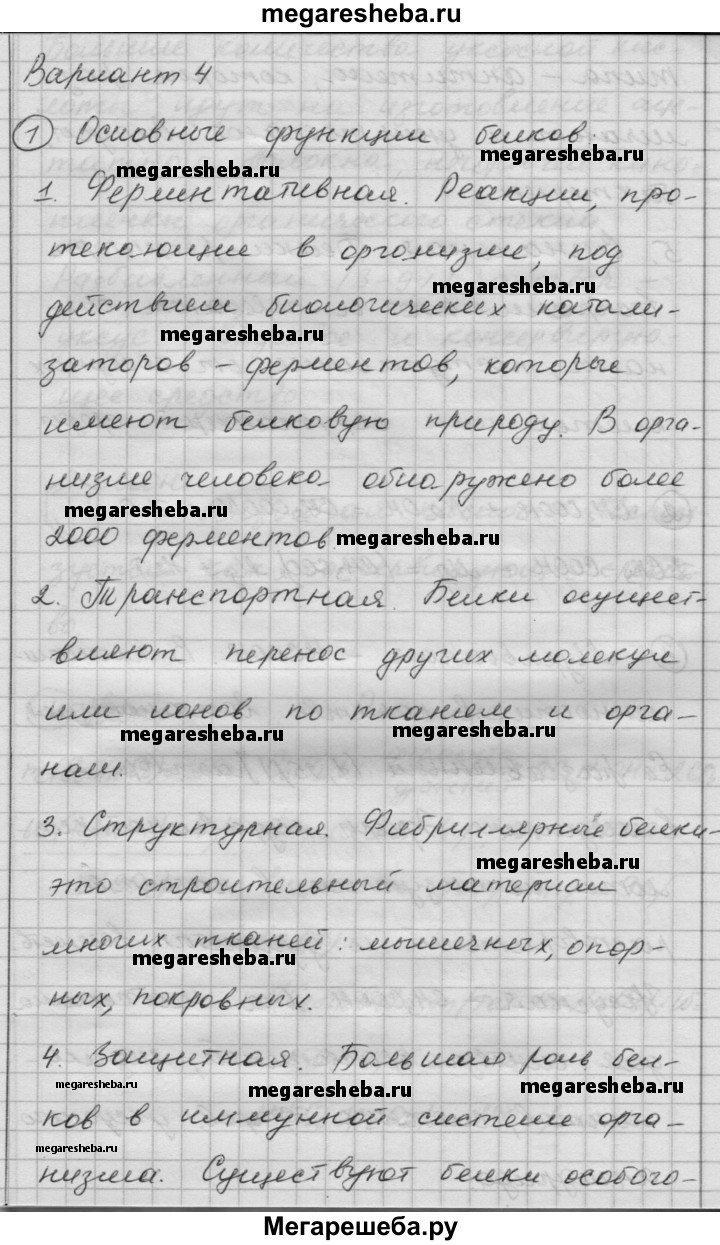 megaresheba.ru
Вариант 4
1 Основные функции белков.
megaresheba.ru
1. Ферментативная. Реакции, про-
текающие в организме, под
megaresheba.ru
действием биологических катали-
megaresheba.ru
заторов – ферментов, которые
имеют белковую природу. В орга-
низме человека обнаружено более
megaresheba.ru
2000 ферментов.
megaresheba.ru
2. Транспортная. Белки осущест-
вляют перенос других молекул
или ионов по тканям и орга-
megaresheba.ru
megaresheba.ru
нам.
3. Структурная. Фибриллярные белки –
megaresheba.ru
это строительный материал
многих тканей: мышечных, опор-
megaresheba.ru
ных, покровных.
4. Защитная. Большая роль бел-
megaresheba.ru
megaresheba.ru
megaresheba.ru
ков в иммунной системе орга-
megaresheba.ru
низма. Существуют белки особого
Мегарешеба.ру